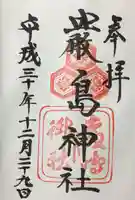 奉拝
厳島神社
平成三十年十二月二十九日